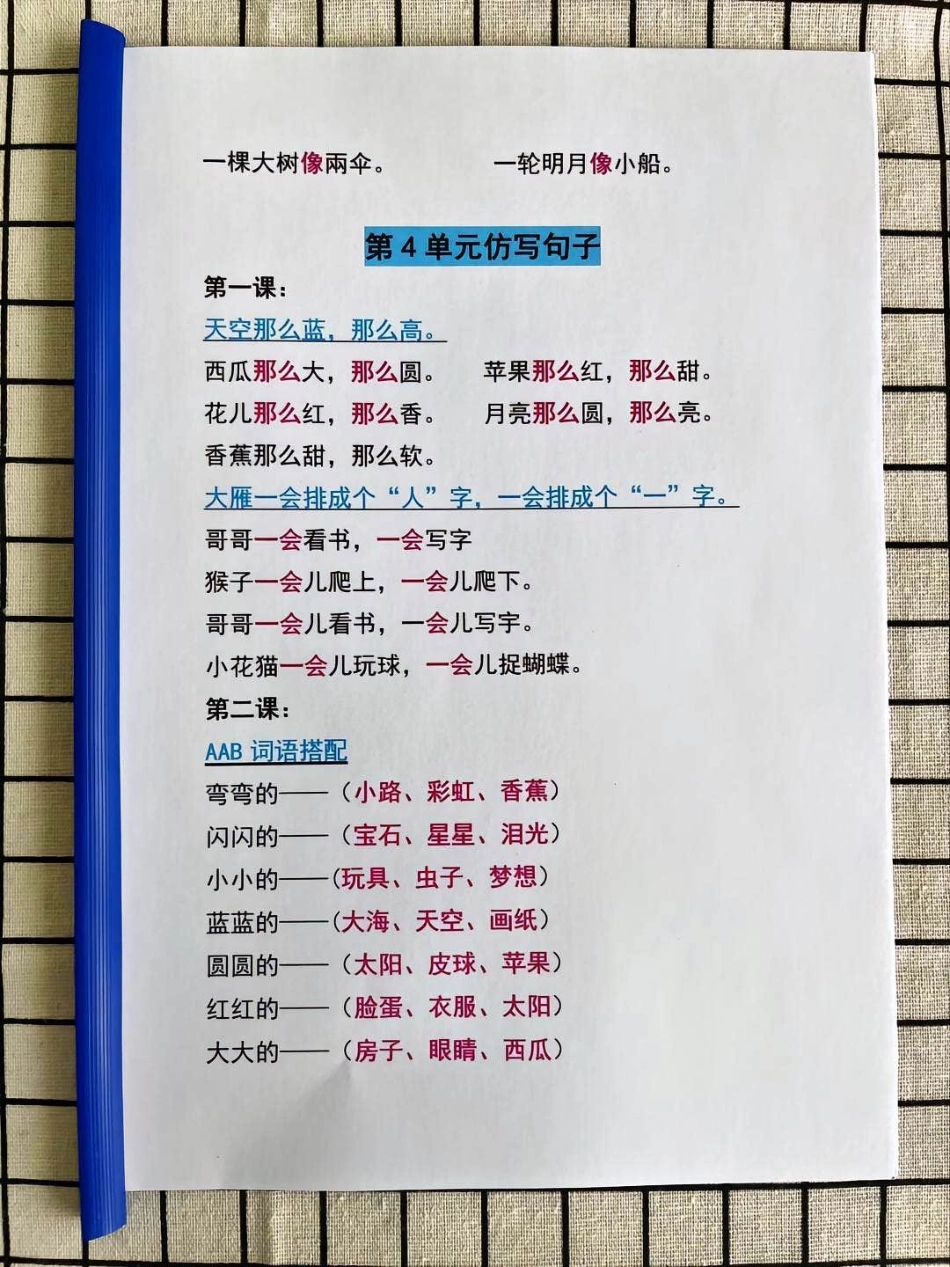 一棵大树像兩伞。 一轮明月像小船。
第4单元仿写句子
第一课：
天空那么蓝，那么高。
西瓜那么大，那么圆。 苹果那么红，那么甜。
花儿那么红，那么香。 月亮那么圆，那么亮。
香蕉那么甜，那么软。
大雁一会排成个“人”字，一会排成个“一”字。
哥哥一会看书，一会写字
猴子一会儿爬上，一会儿爬下。
哥哥一会儿看书，一会儿写字。
小花猫一会儿玩球，一会儿捉蝴蝶。
第二课：
AAB 词语搭配
弯弯的——（小路、彩虹、香蕉）
闪闪的——（宝石、星星、泪光）
小小的——(玩具、虫子、梦想）
蓝蓝的——(大海、天空、画纸）
圆圆的——（太阳、皮球、苹果）
红红的——（脸蛋、衣服、太阳）
大大的——（房子、眼睛、西瓜）